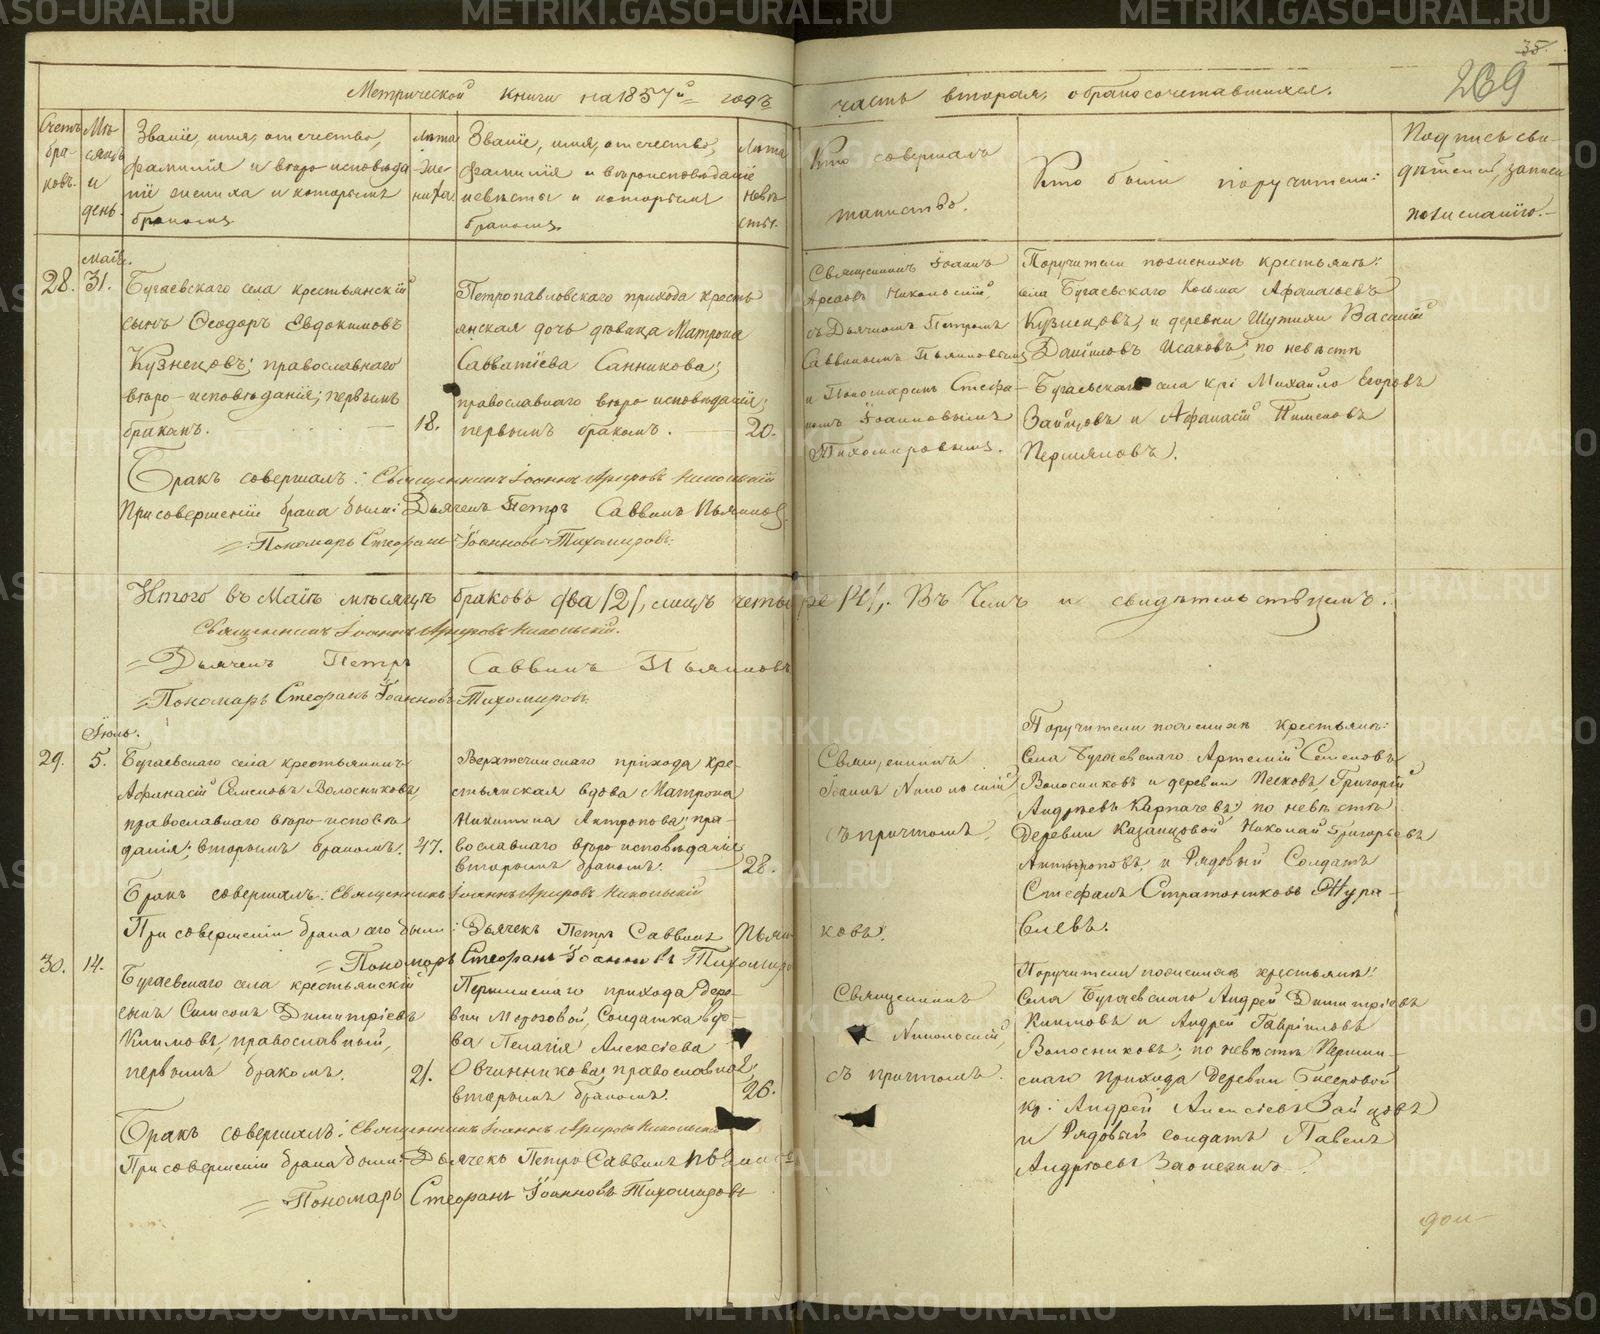 METRIKI.GASO-URAL.RU
35.
269
Метрической книги на 1857й годъ
часть вторая, о бракосочетавшихся.
Счетъ браковъ.
Мѣсяцъ и день.
Званіе, имя, отчество, фамилія и вѣроисповѣданіе жениха и которымъ бракомъ
Лѣта жениха.
Званіе, имя, отчество, фамилія и вѣроисповѣданіе невѣсты и которымъ бракомъ
Лѣта невѣсты.
Кто совершалъ таинство.
Кто были поручители:
Подпись свидѣтелей, записи по желанію.
Май.
28. 31.
Бугаевскаго села крестьянскій
сынъ Ѳеодоръ Евдокимовъ
Кузнецовъ; православнаго
вѣро-исповѣданія; первымъ
бракомъ. 18.
Петропавловскаго прихода кресть
янская дочь дѣвица Матрона
Савватіева Санникова;
православнаго вѣро исповѣданія;
первымъ бракомъ. 20.
Священникъ Іоаннъ
Никольскій,
съ Дьячкомъ Петромъ
Саввинымъ Пьянковымъ
и Пономаремъ Стефа-
номъ Іоанновымъ
Тихомировымъ.
Поручители по женихѣ крестьяне:
села Бугаевскаго Козьма Афанасьевъ
Кузнецовъ, и деревни Шутихи Василій
Даніиловъ Исаковъ; по невѣстѣ
Бугаевскаго села кре Михайло Егоровъ
Зайцовъ и Афанасій Пименовъ
Першяковъ.
Бракъ совершалъ: Священникъ Іоаннъ Никольскій
При совершеніи брака были: Дьячекъ Петръ Саввинъ Пьянковъ
Пономарь Стефанъ Іоанновъ Тихомировъ.
Итого въ Маѣ мѣсяцѣ браковъ два /2/, лицъ четыре /4/. Въ чемъ и свидѣтельствуемъ.
Священникъ Іоаннъ Никольскій.
Дьячекъ Петръ Саввинъ Пьянковъ
Пономарь Стефанъ Іоанновъ Тихомировъ
Іюль.
29. 5.
Бугаевскаго села крестьянинъ
Афанасій Семеновъ Волосниковъ,
православнаго вѣро-исповѣ
данія; вторымъ бракомъ. 47.
Верхтечинскаго прихода кре-
стьянская вдова Матрона
Никитина Антропова; пра-
вославнаго вѣро исповѣданія
вторымъ бракомъ. 28.
Священникъ
Іоаннъ Никольскій
съ причтомъ.
Поручители по женихѣ крестьяне:
Села Бугаевскаго Артемій Семеновъ
Волосниковъ и деревни Песковъ, Григорій
Андреевъ Карпачевъ; по невѣстѣ
деревни Казанцовой Николай Григорьевъ
Антроповъ, и Рядовый Солдатъ
Стефанъ Стратониковъ Жура-
влевъ.
Бракъ совершалъ: Священникъ Іоаннъ Никольскій
При совершеніи брака сего были: Дьячекъ Петръ Саввинъ Пьянковъ.
Пономарь Стефанъ Іоанновъ Тихомиро
30. 14.
Бугаевскаго села крестьянскій
сынъ Самсонъ Димитріевъ
Климовъ, православный,
первымъ бракомъ. 21.
Першинскаго прихода дере-
вни Морозовой, Солдатка вдо-
ва Пелагія Алексіева
Овчинникова, православная,
вторымъ бракомъ. 26.
Священникъ
Никольскій,
съ причтомъ.
Поручители по женихѣ крестьяне:
Села Бугаевскаго Андрей Димитріевъ
Климовъ и Андрей Гавріиловъ
Волосниковъ; по невѣстѣ Першин-
скаго прихода деревни
кр: Андрей Алексіевъ Зайцовъ
и Рядовый солдатъ Павелъ
Андреевъ
Бракъ совершалъ: Священникъ Іоаннъ Никольскій
При совершеніи брака были: Дьячекъ Петръ Саввинъ
Пономарь Стефанъ Іоанновъ Тихомировъ